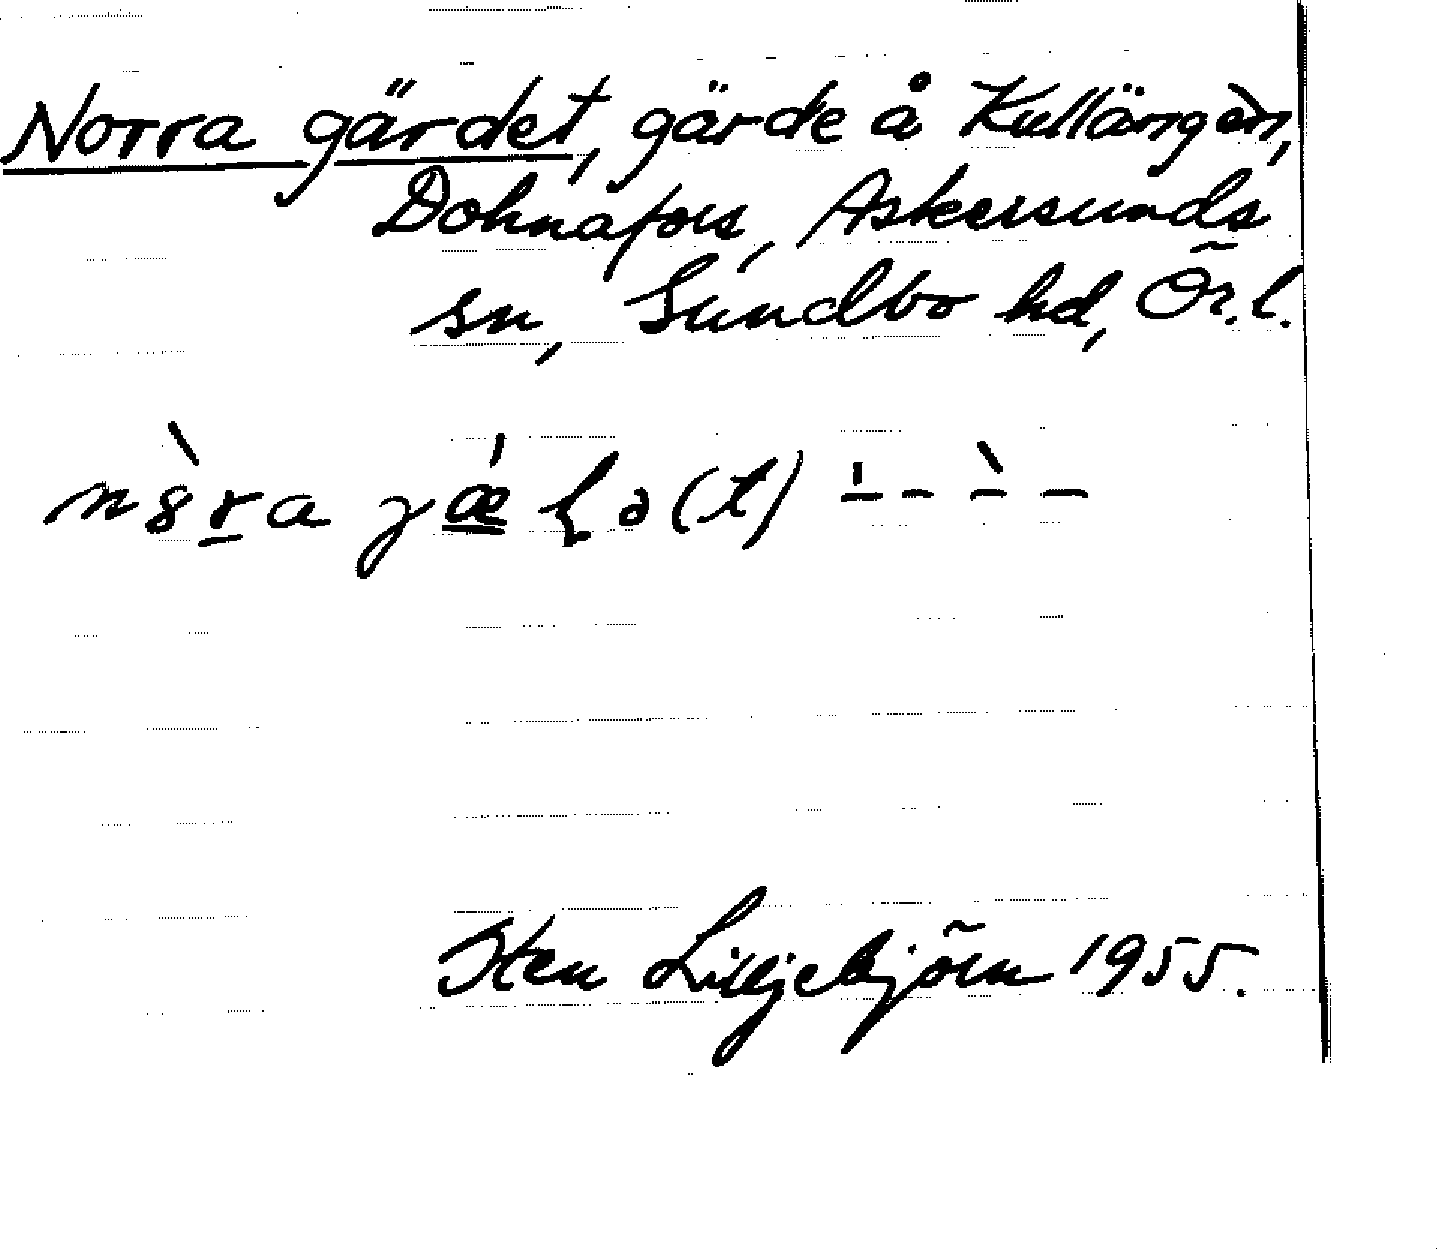 Norra gärdet, gärde å Kullängen,
Dohnafors, Askersunds
sn, Sundbo hd, Ör.l.
Sten Liljebjörn 1955.